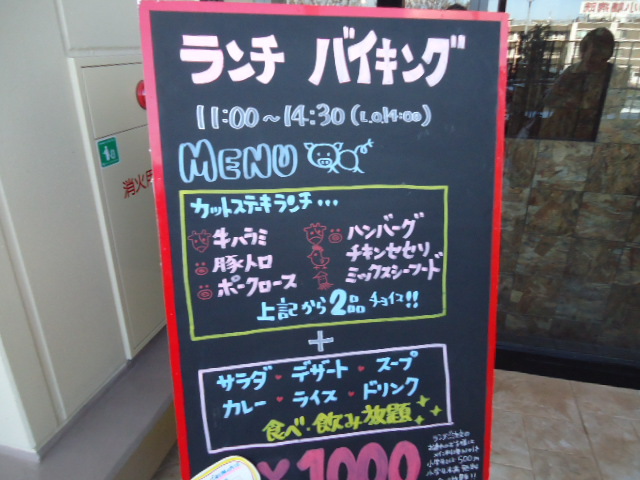 ランチ バイキング
11:00〜14:30(L.O.14:00)
MENU
カットステーキランチ…
牛ハラミ
豚トロ
ポークロース
ハンバーグ
チキンセセリ
ミックスシーフード
上記から2品チョイス!!
+
サラダ・デザート・スープ
カレー・ライス・ドリンク
食べ・飲み放題
¥1000
消火